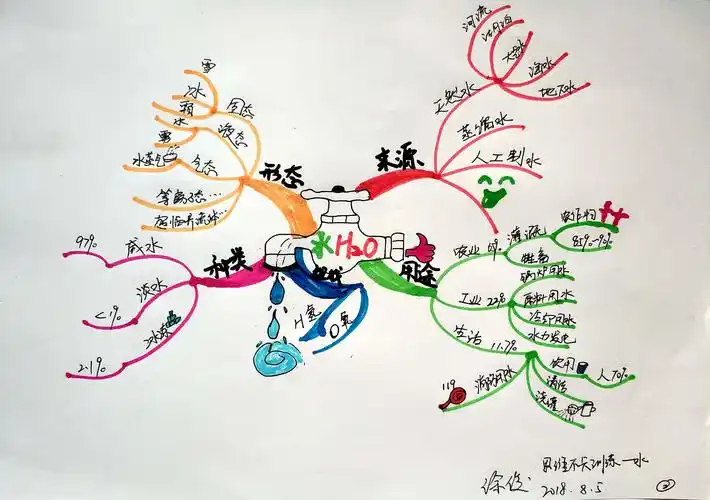 水 H₂O
来源
天然水
河流
湖泊
大气水
海水
地下水
蒸馏水
人工制水
用途
农业 69%
灌溉
农作物
85%-90%
牲畜
工业 22%
锅炉用水
原料用水
冷却用水
水力发电
生活 11.7%
饮用
人 70%
清洁
浇灌
消防用水
119
H 氢
O 氧
种类
咸水
97%
淡水
<1%
冰冻
2.1%
形态
固态
雪
冰
霜
液态
水
雾
气态
水蒸气
等离子态…
超临界流体…
思维不长训练—水
徐俊
2018.8.5